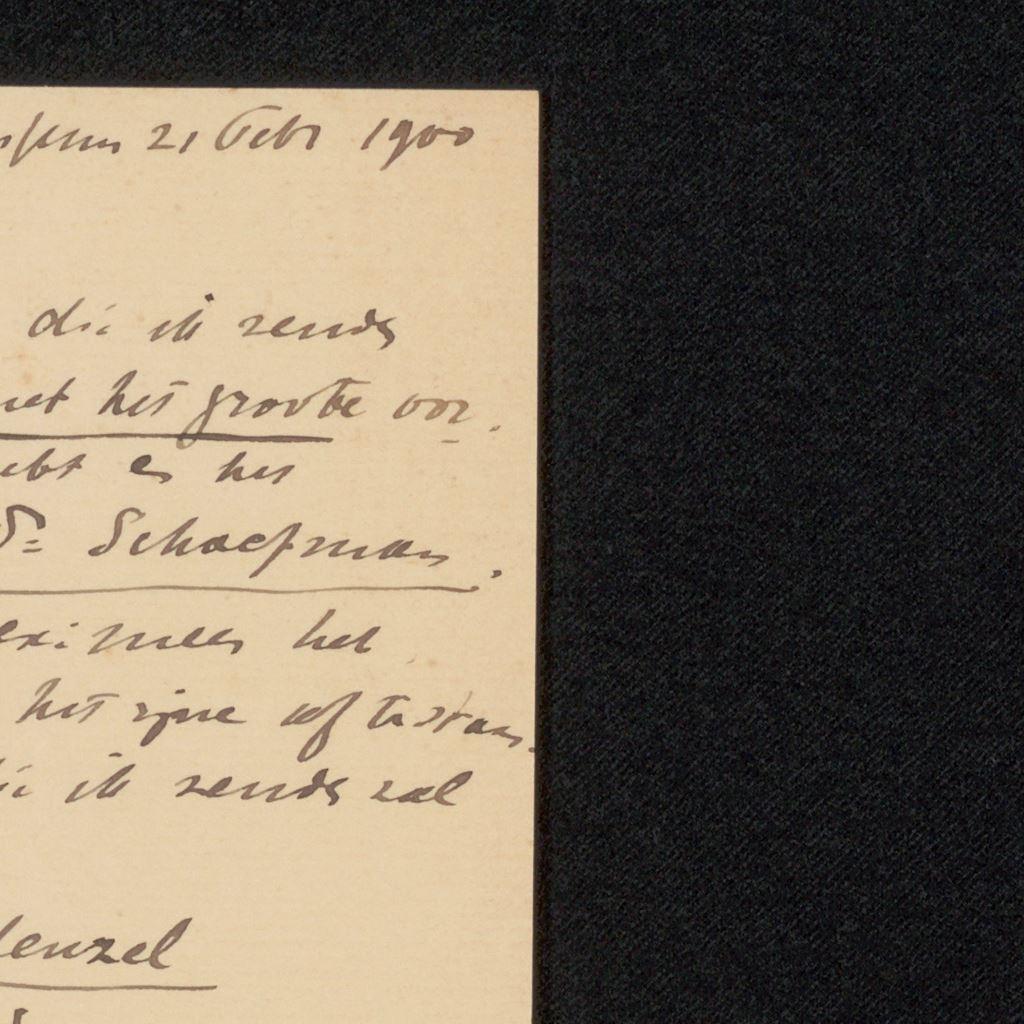 21 Febr 1900
die ik zende
met het groote oor.
ebt es het
Dr Schaepman,
eximeer het
het zijne af te staan.
die ik zende zal
Menzel